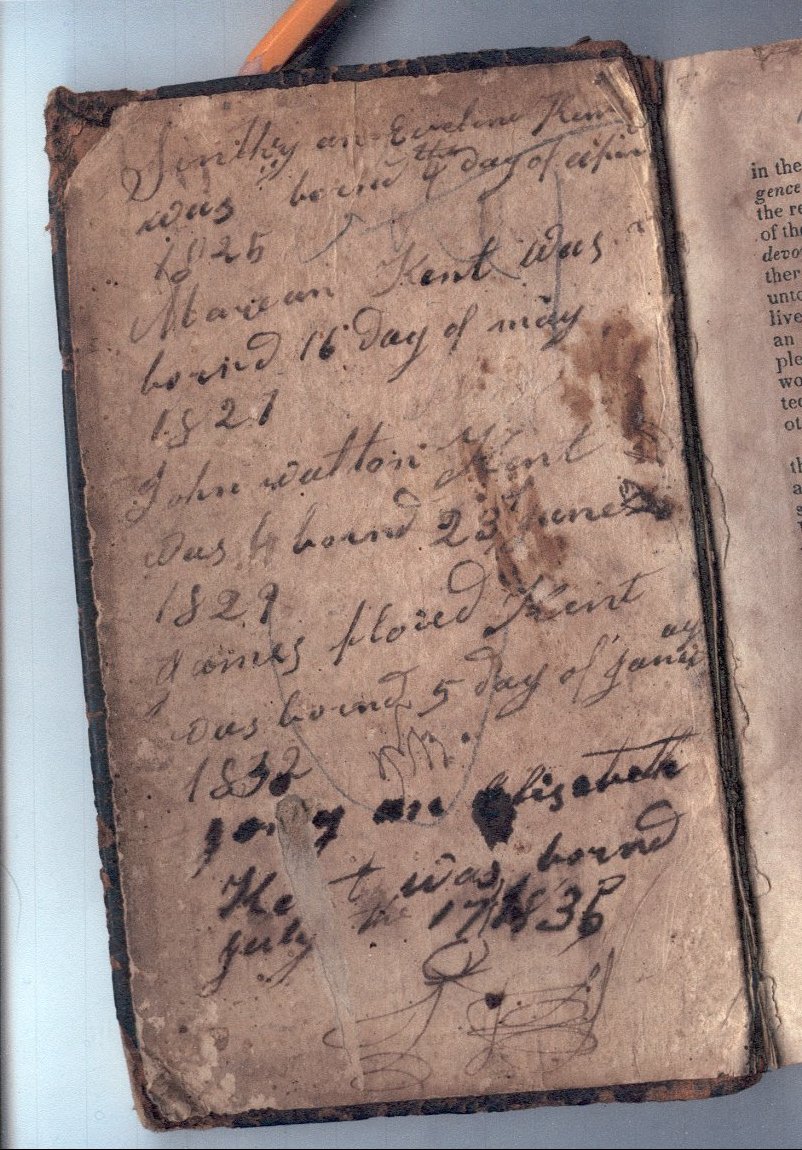 Sinthy an Evelene Kent
was bornd the 4 day of apiri
1825
Marean Kent was
bornd 16 day of may
1827
John watton Kent
was b bornd 23 June
1829
James floied Kent
was bornd 5 day of januay
1832
an Elisabeth
Kent was bornd
july the 17 1835
in the
gence
the re
of the
devo
ther
unto
live
an
ple
wo
ted
ot